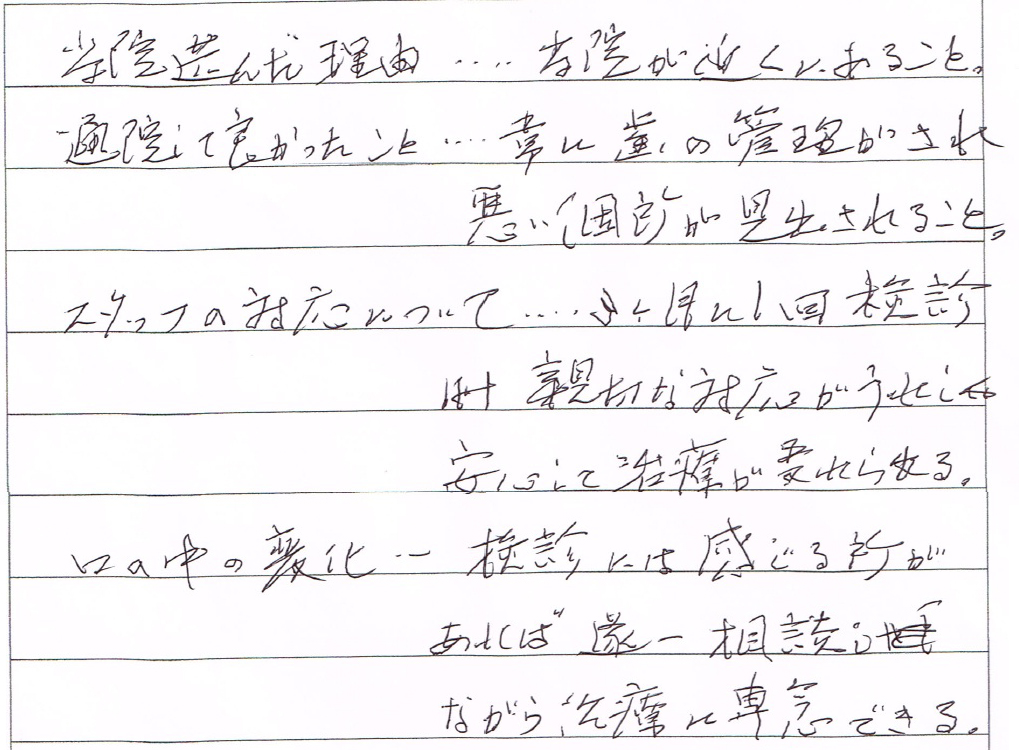 当院選んだ理由‥‥当院が近くにあること。
通院して良かったこと‥‥常に歯の管理がされ
悪い個所が見出されること。
スタッフの対応について‥‥ヶ月に1回検診
時 親切な対応がうれしく
安心して治療が受れられる。
口の中の変化‥検診には感じる所が
あれば逐一相談し
ながら治療に専念できる。